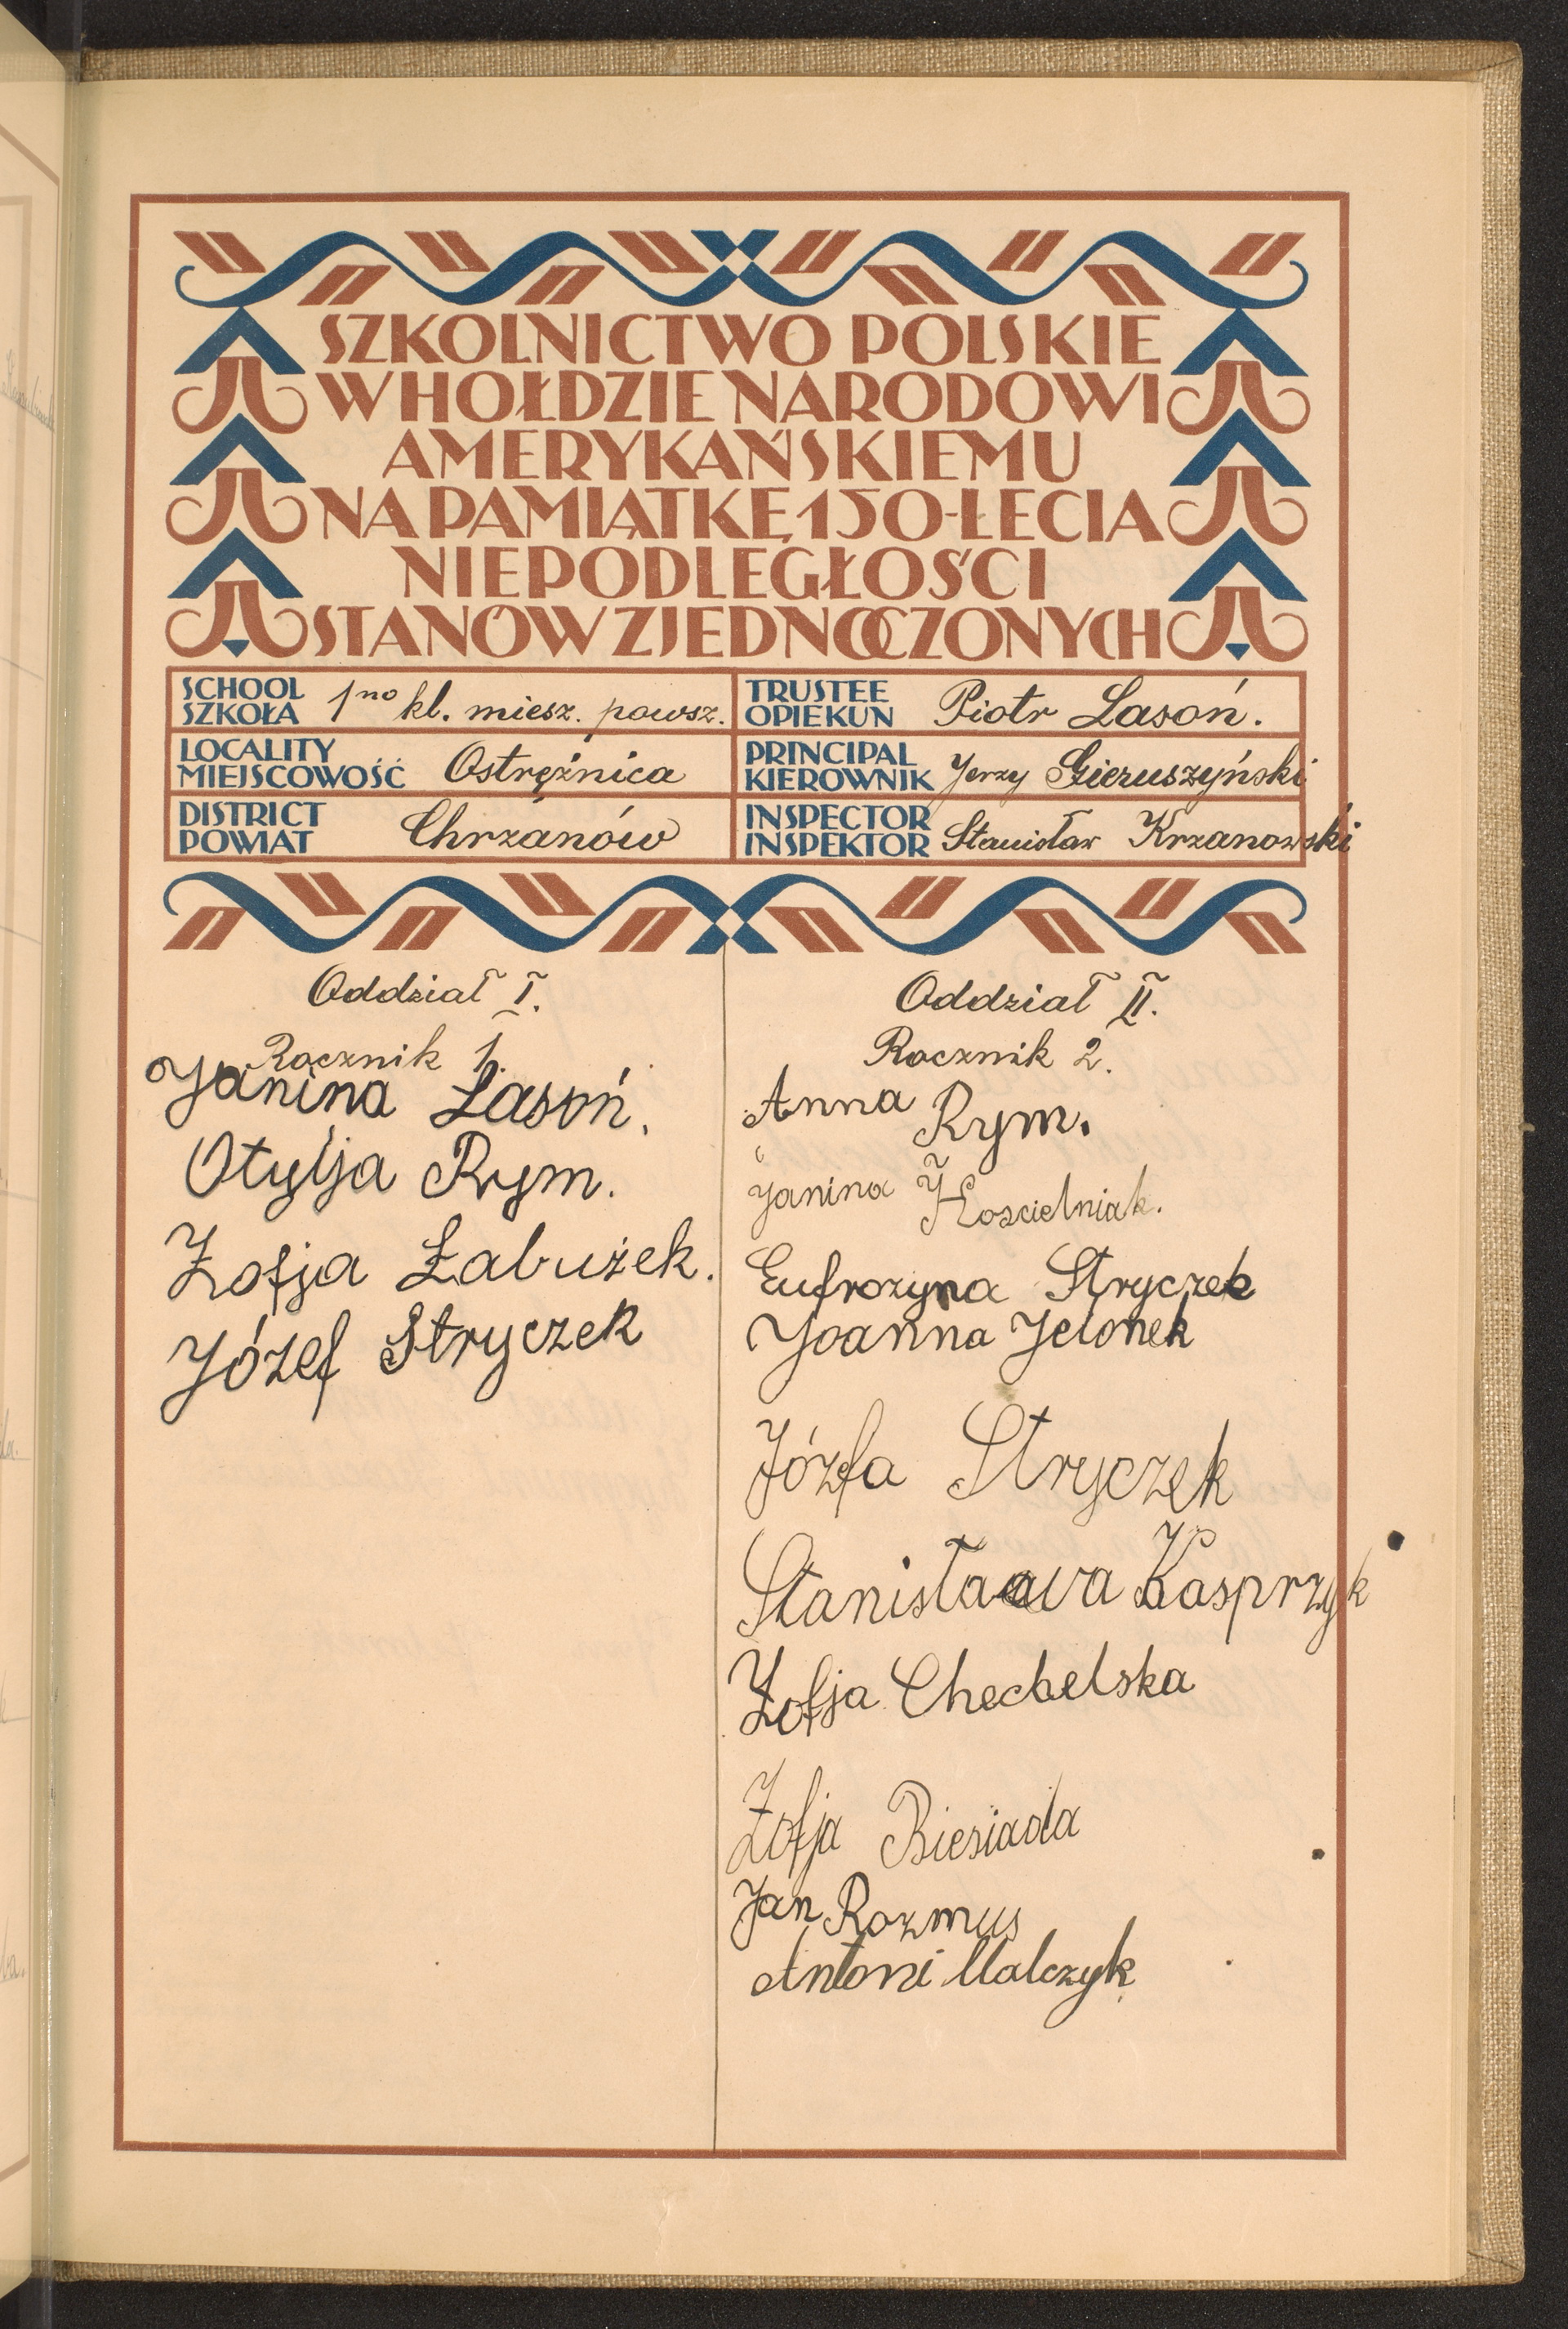 SZKOLNICTWO POLSKIE
W HOŁDZIE NARODOWI
AMERYKAŃSKIEMU
NA PAMIĄTKĘ 150-LECIA
NIEPODLEGŁOŚCI
STANÓW ZJEDNOCZONYCH
SCHOOL
SZKOŁA 1no kl. miesz. powsz.
LOCALITY
MIEJSCOWOŚĆ Ostrężnica
DISTRICT
POWIAT Chrzanów
TRUSTEE
OPIEKUN Piotr Lasoń.
PRINCIPAL
KIEROWNIK Jerzy Gieruszyński
INSPECTOR
INSPEKTOR Stanisław Krzanowski
Oddział I.
Rocznik 1.
Janina Lasoń.
Otylja Rym.
Zofja Łabużek.
Józef Stryczek
Oddział II.
Rocznik 2.
Anna Rym.
Janina Kościelniak.
Eufrozyna Stryczek
Joanna Jelonek
Józfa Stryczek
Stanisława Kasprzyk
Zofja Chechelska
Zofja Biesiada
Jan Rozmus
Antoni Malczyk